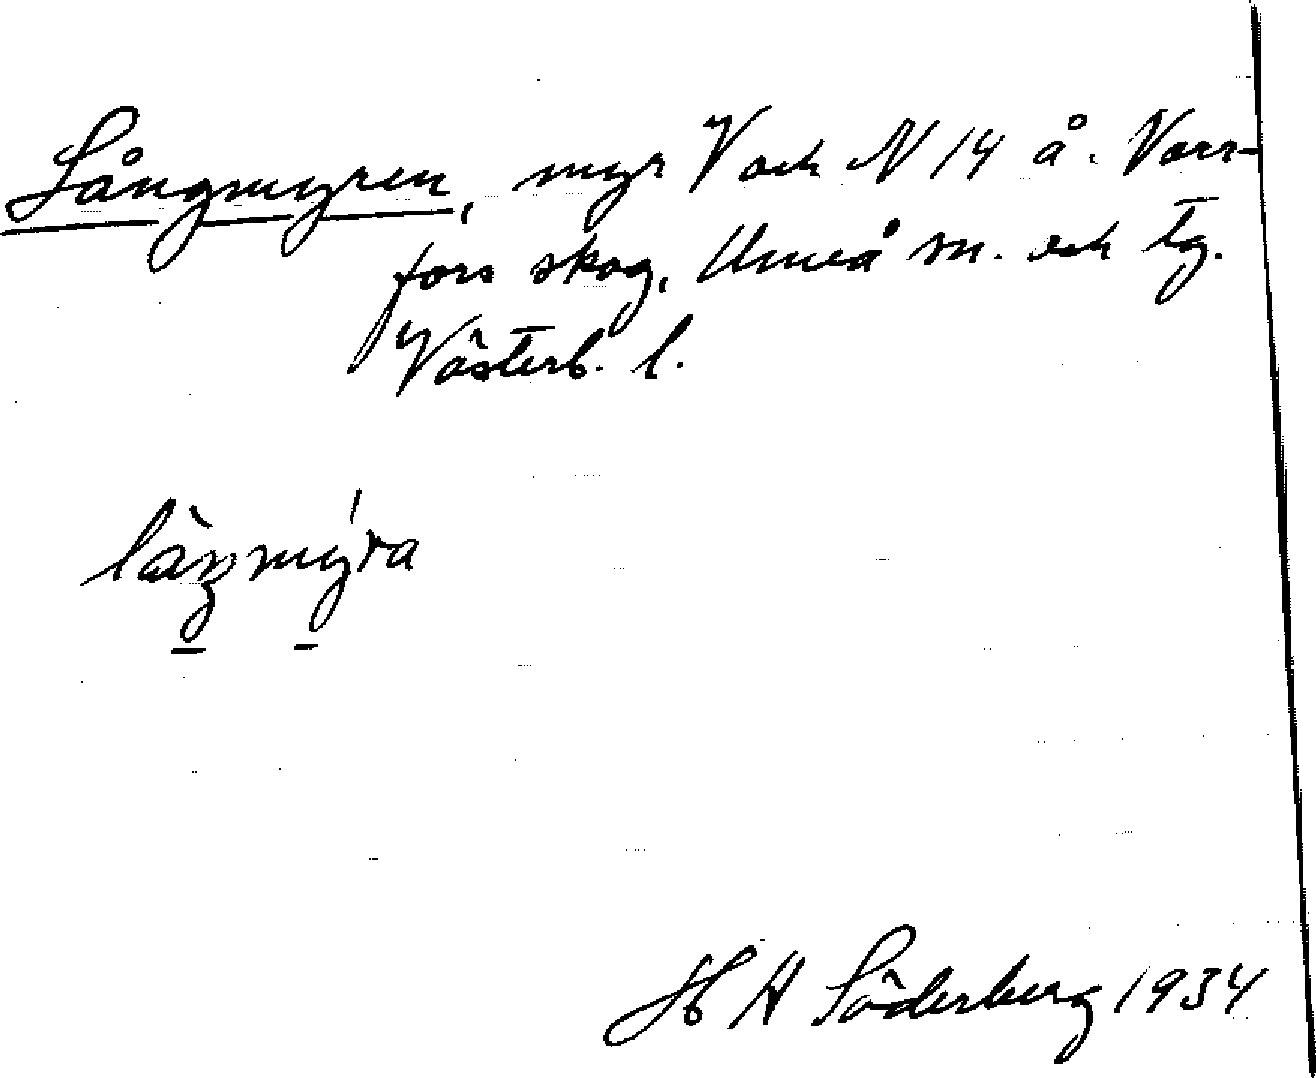 Långmyren, myr V och N 14 å. Norr-
fors skog, Umeå sn. och tg.
Västerb. l.
H A Söderberg 1934